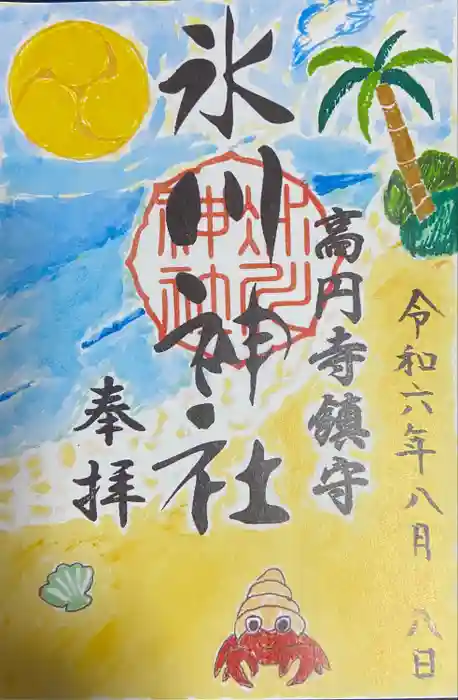 令和六年八月八日
高円寺鎮守
氷川神社
奉拝
氷川神社